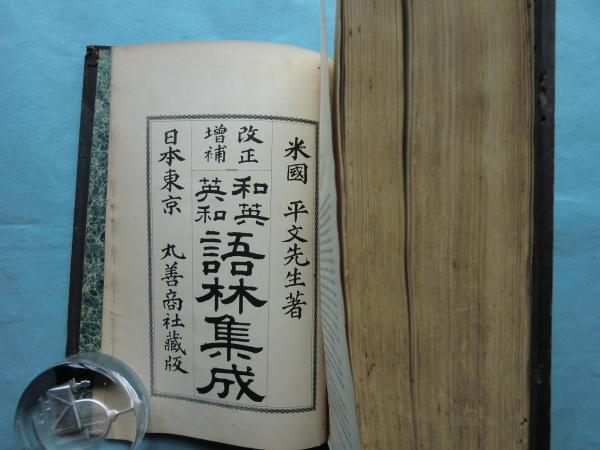 米國 平文先生著
改正
增補
和英
英和
語林集成
日本東京 丸善商社藏版